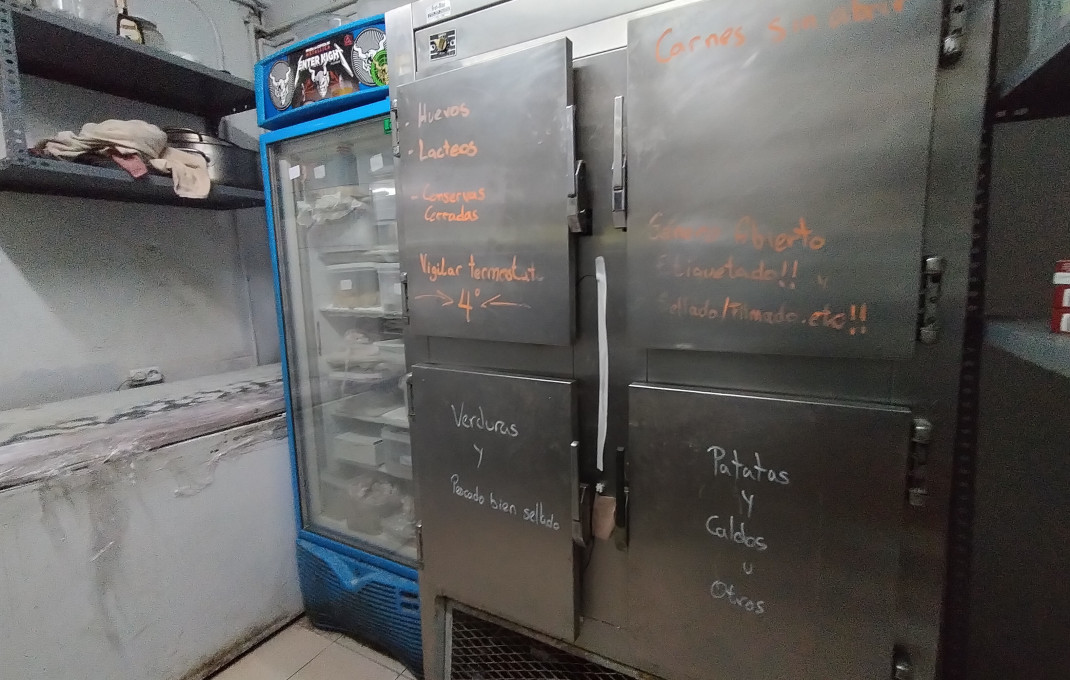 ENTER NIGHT
- Huevos
- Lacteos
- Conservas
Cerradas
Vigilar termostat
→ 4° ←
Carnes sin abrir
Abierto
Etiquetado!! y
Sellado/Filmado.etc!!
Verduras
y
Pescado bien sellado
Patatas
y
Caldos
u
Otros